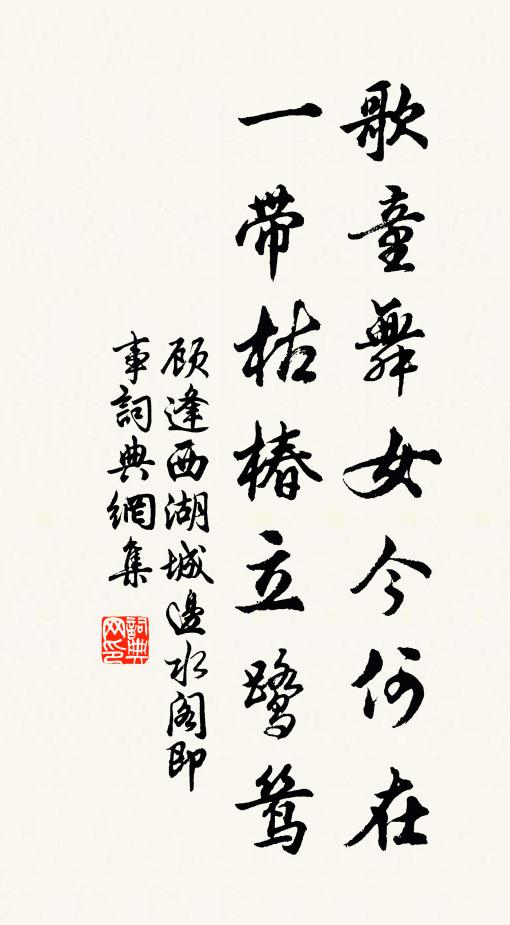 歌童舞女今何在
一带枯椿立鹭鸶
顾逢西湖城邊水阁即
事詞典網集
詞典网印